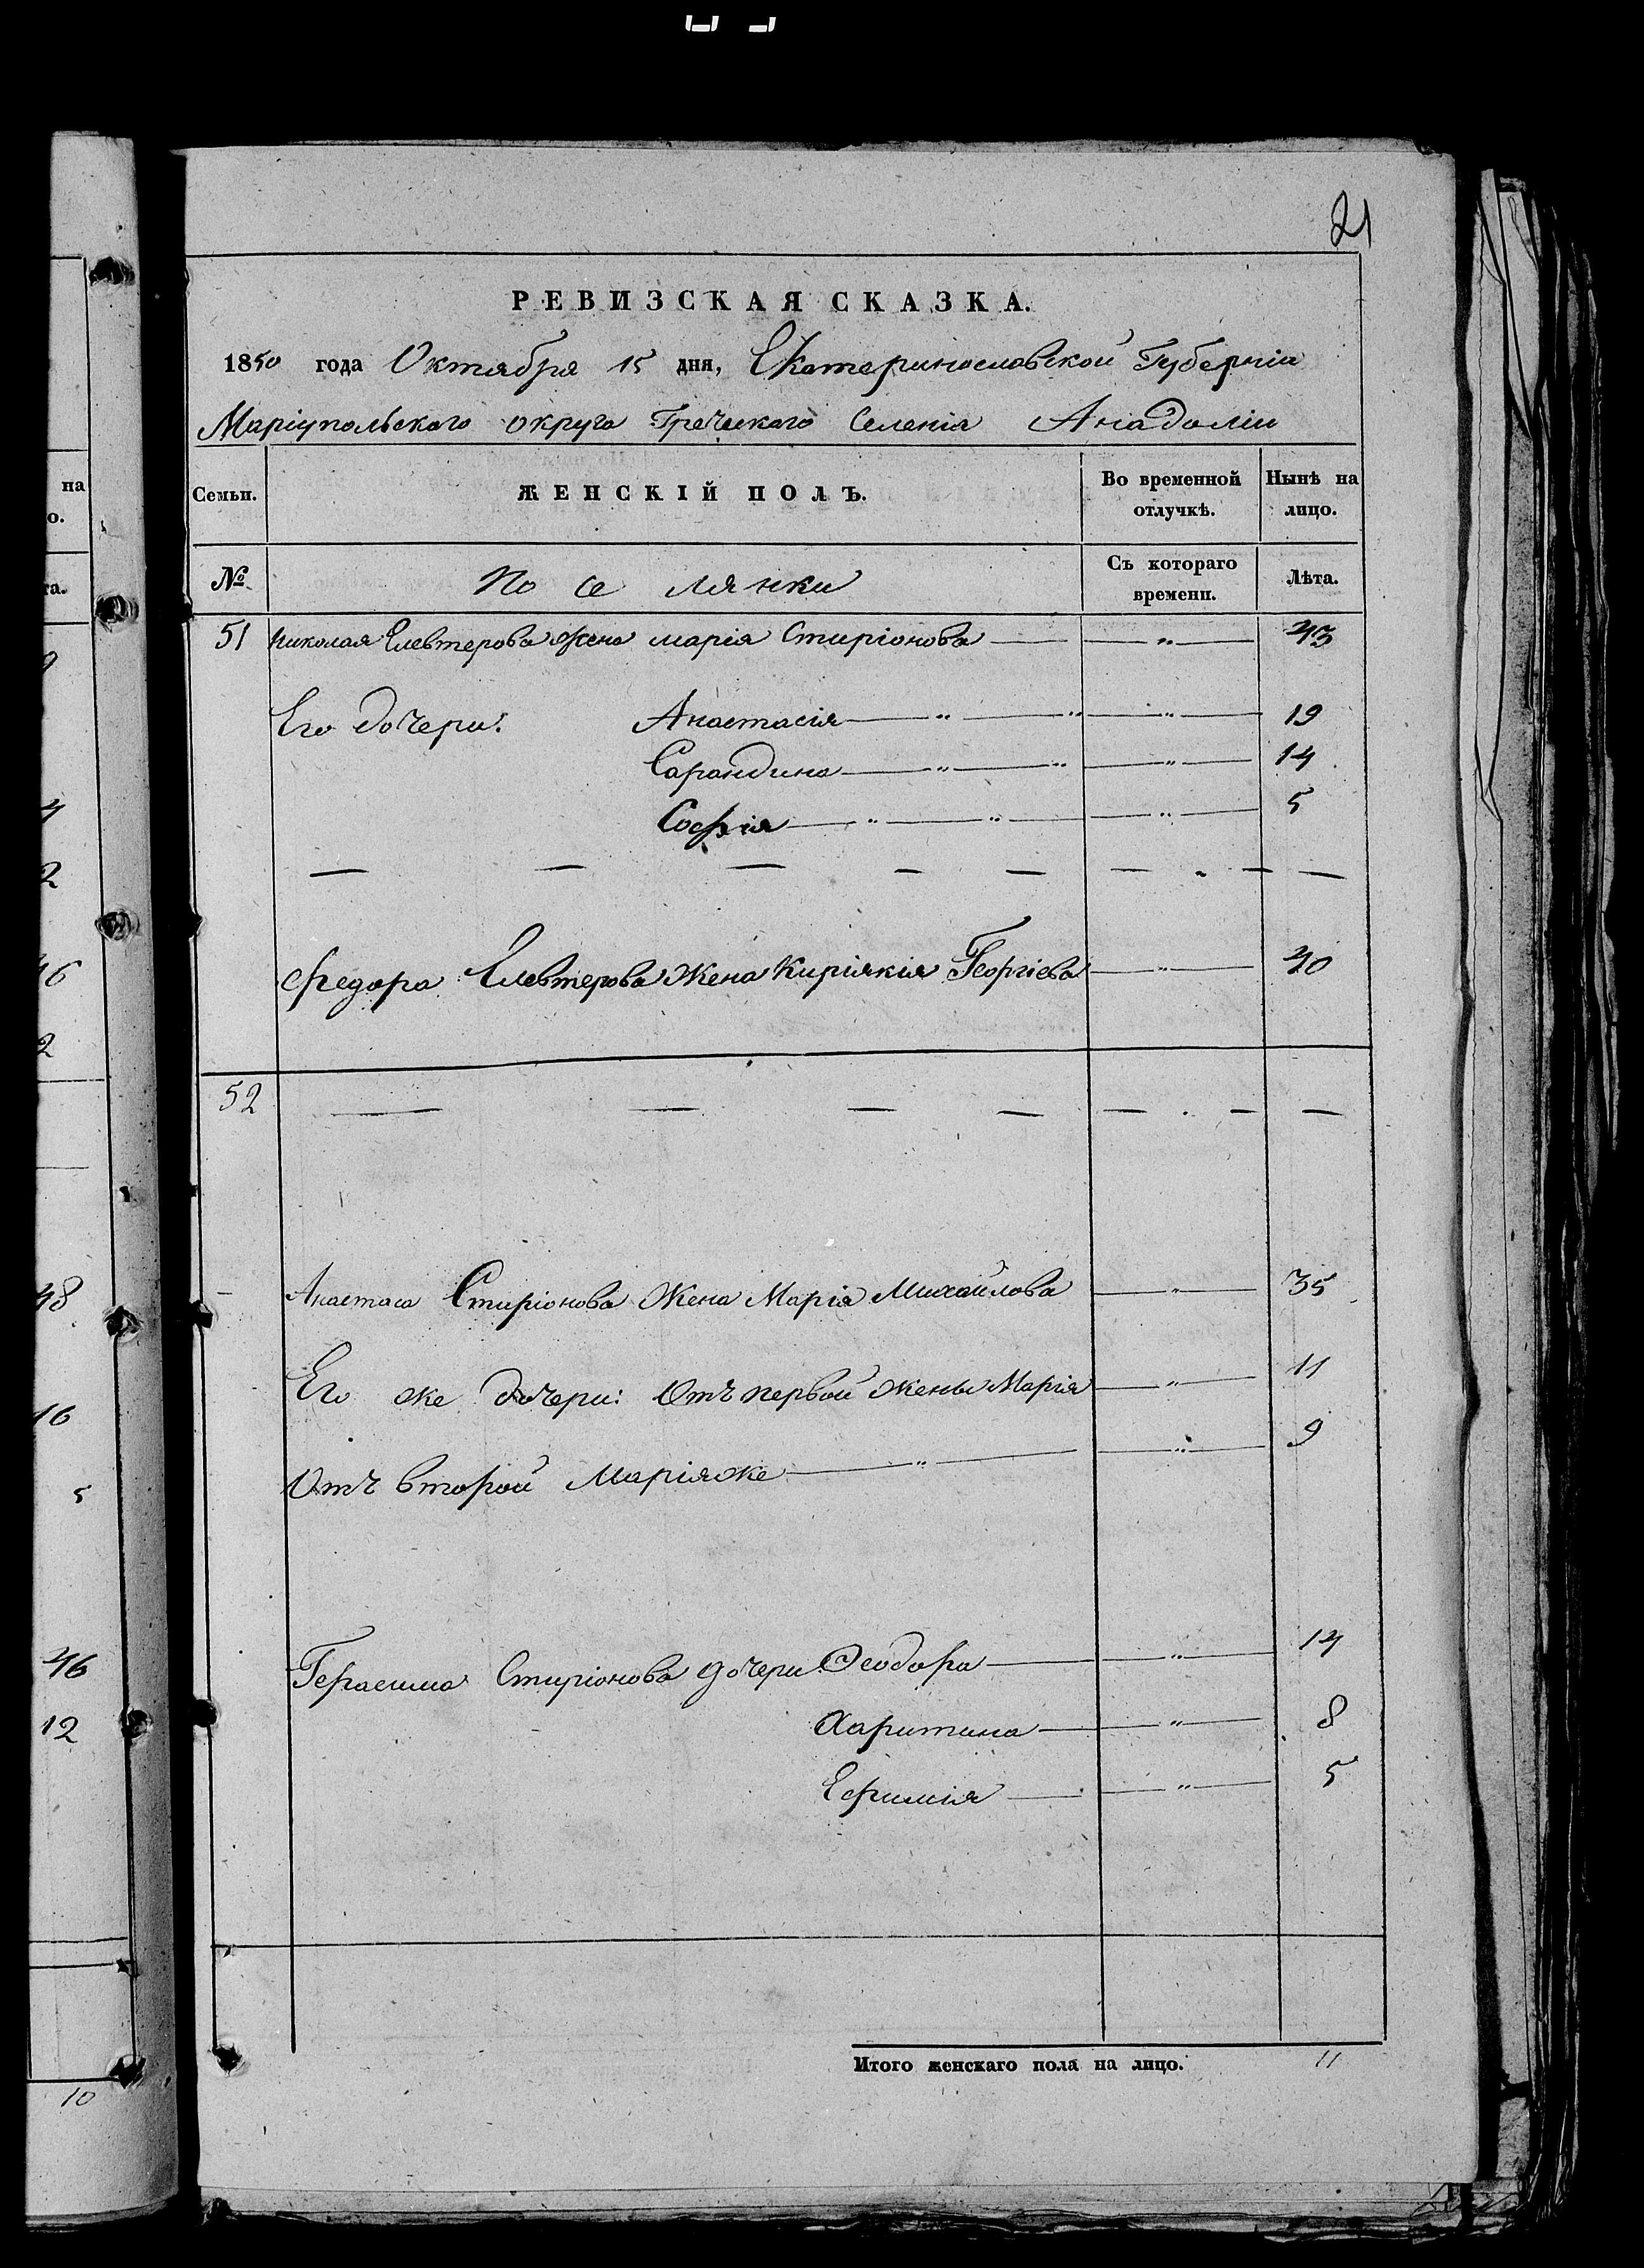 21
РЕВИЗСКАЯ СКАЗКА.
1850 года Октября 15 дня, Екатеринославской Губерніи
Маріупольского округа Греческаго Селенія Анадоліи
Семьи. ЖЕНСКІЙ ПОЛЪ. Во временной отлучкѣ. Нынѣ на лицо.
№ Поселянки Съ котораго времени. Лѣта.
51 Николая Елевтерова Жена марія Стиріонова — „ — 43
Его дочери: Анастасія — „ — „ — „ — 19
Сарандина — „ — „ — „ — 14
Софія — „ — „ — „ — 5
Федора Елевтерова Жена Киріякія Георгіева — „ — 40
52
Анастаса Стиріонова Жена Марія Михайлова — „ — 35
Его же дочери: Отъ первой жены Марія — „ — 11
Отъ второй Маріяже — „ — „ — 9
Герасима Стиріонова дочери: Феодора — „ — 14
Харитина — „ — 8
Ефимія — „ — 5
Итого женскаго пола на лицо. 11
на
о.
та.
4
2
46
2
48
16
5
46
12
10